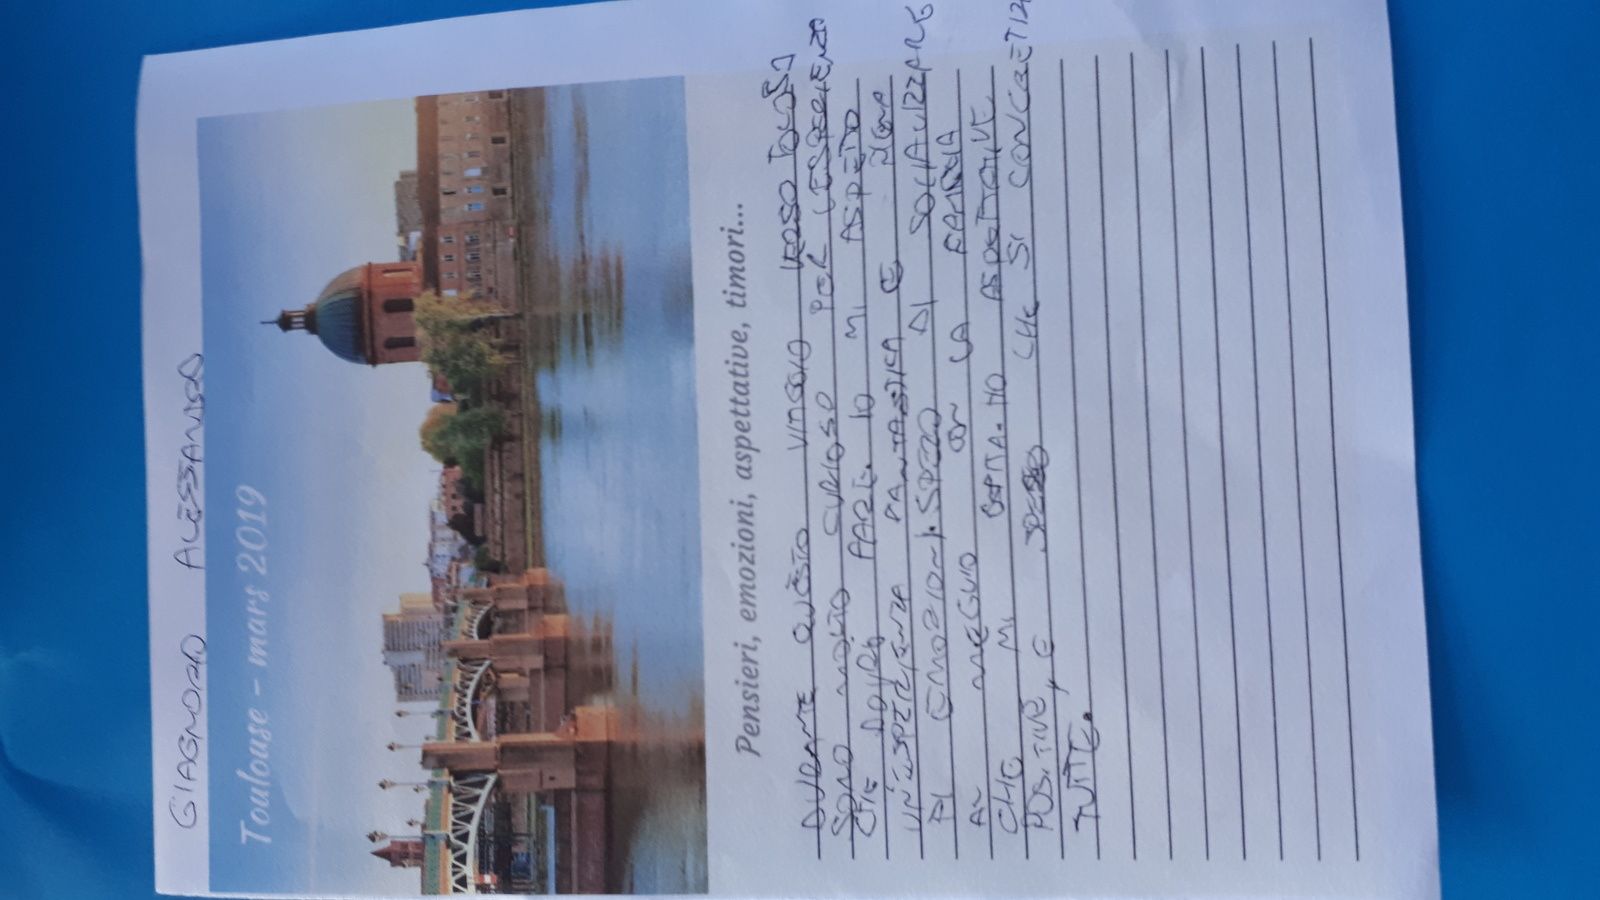 GIAGNORIO ALESSANDRO
Toulouse - mars 2019
Pensieri, emozioni, aspettative, timori...
DURANTE QUESTO VIAGGIO VERSO TOLOSA
SONO MOLTO CURIOSO PER L'ESPERIENZA
CHE DOVRÒ FARE. IO MI ASPETTO
UN'ESPERIENZA FANTASTICA E PIENA
DI EMOZIONI. SPERO DI SOCIALIZZARE
AL MEGLIO CON LA FAMIGLIA
CHE MI OSPITA. HO ASPETTATIVE
POSITIVE, E SPERO CHE SI CONCRETIZZINO
TUTTE.